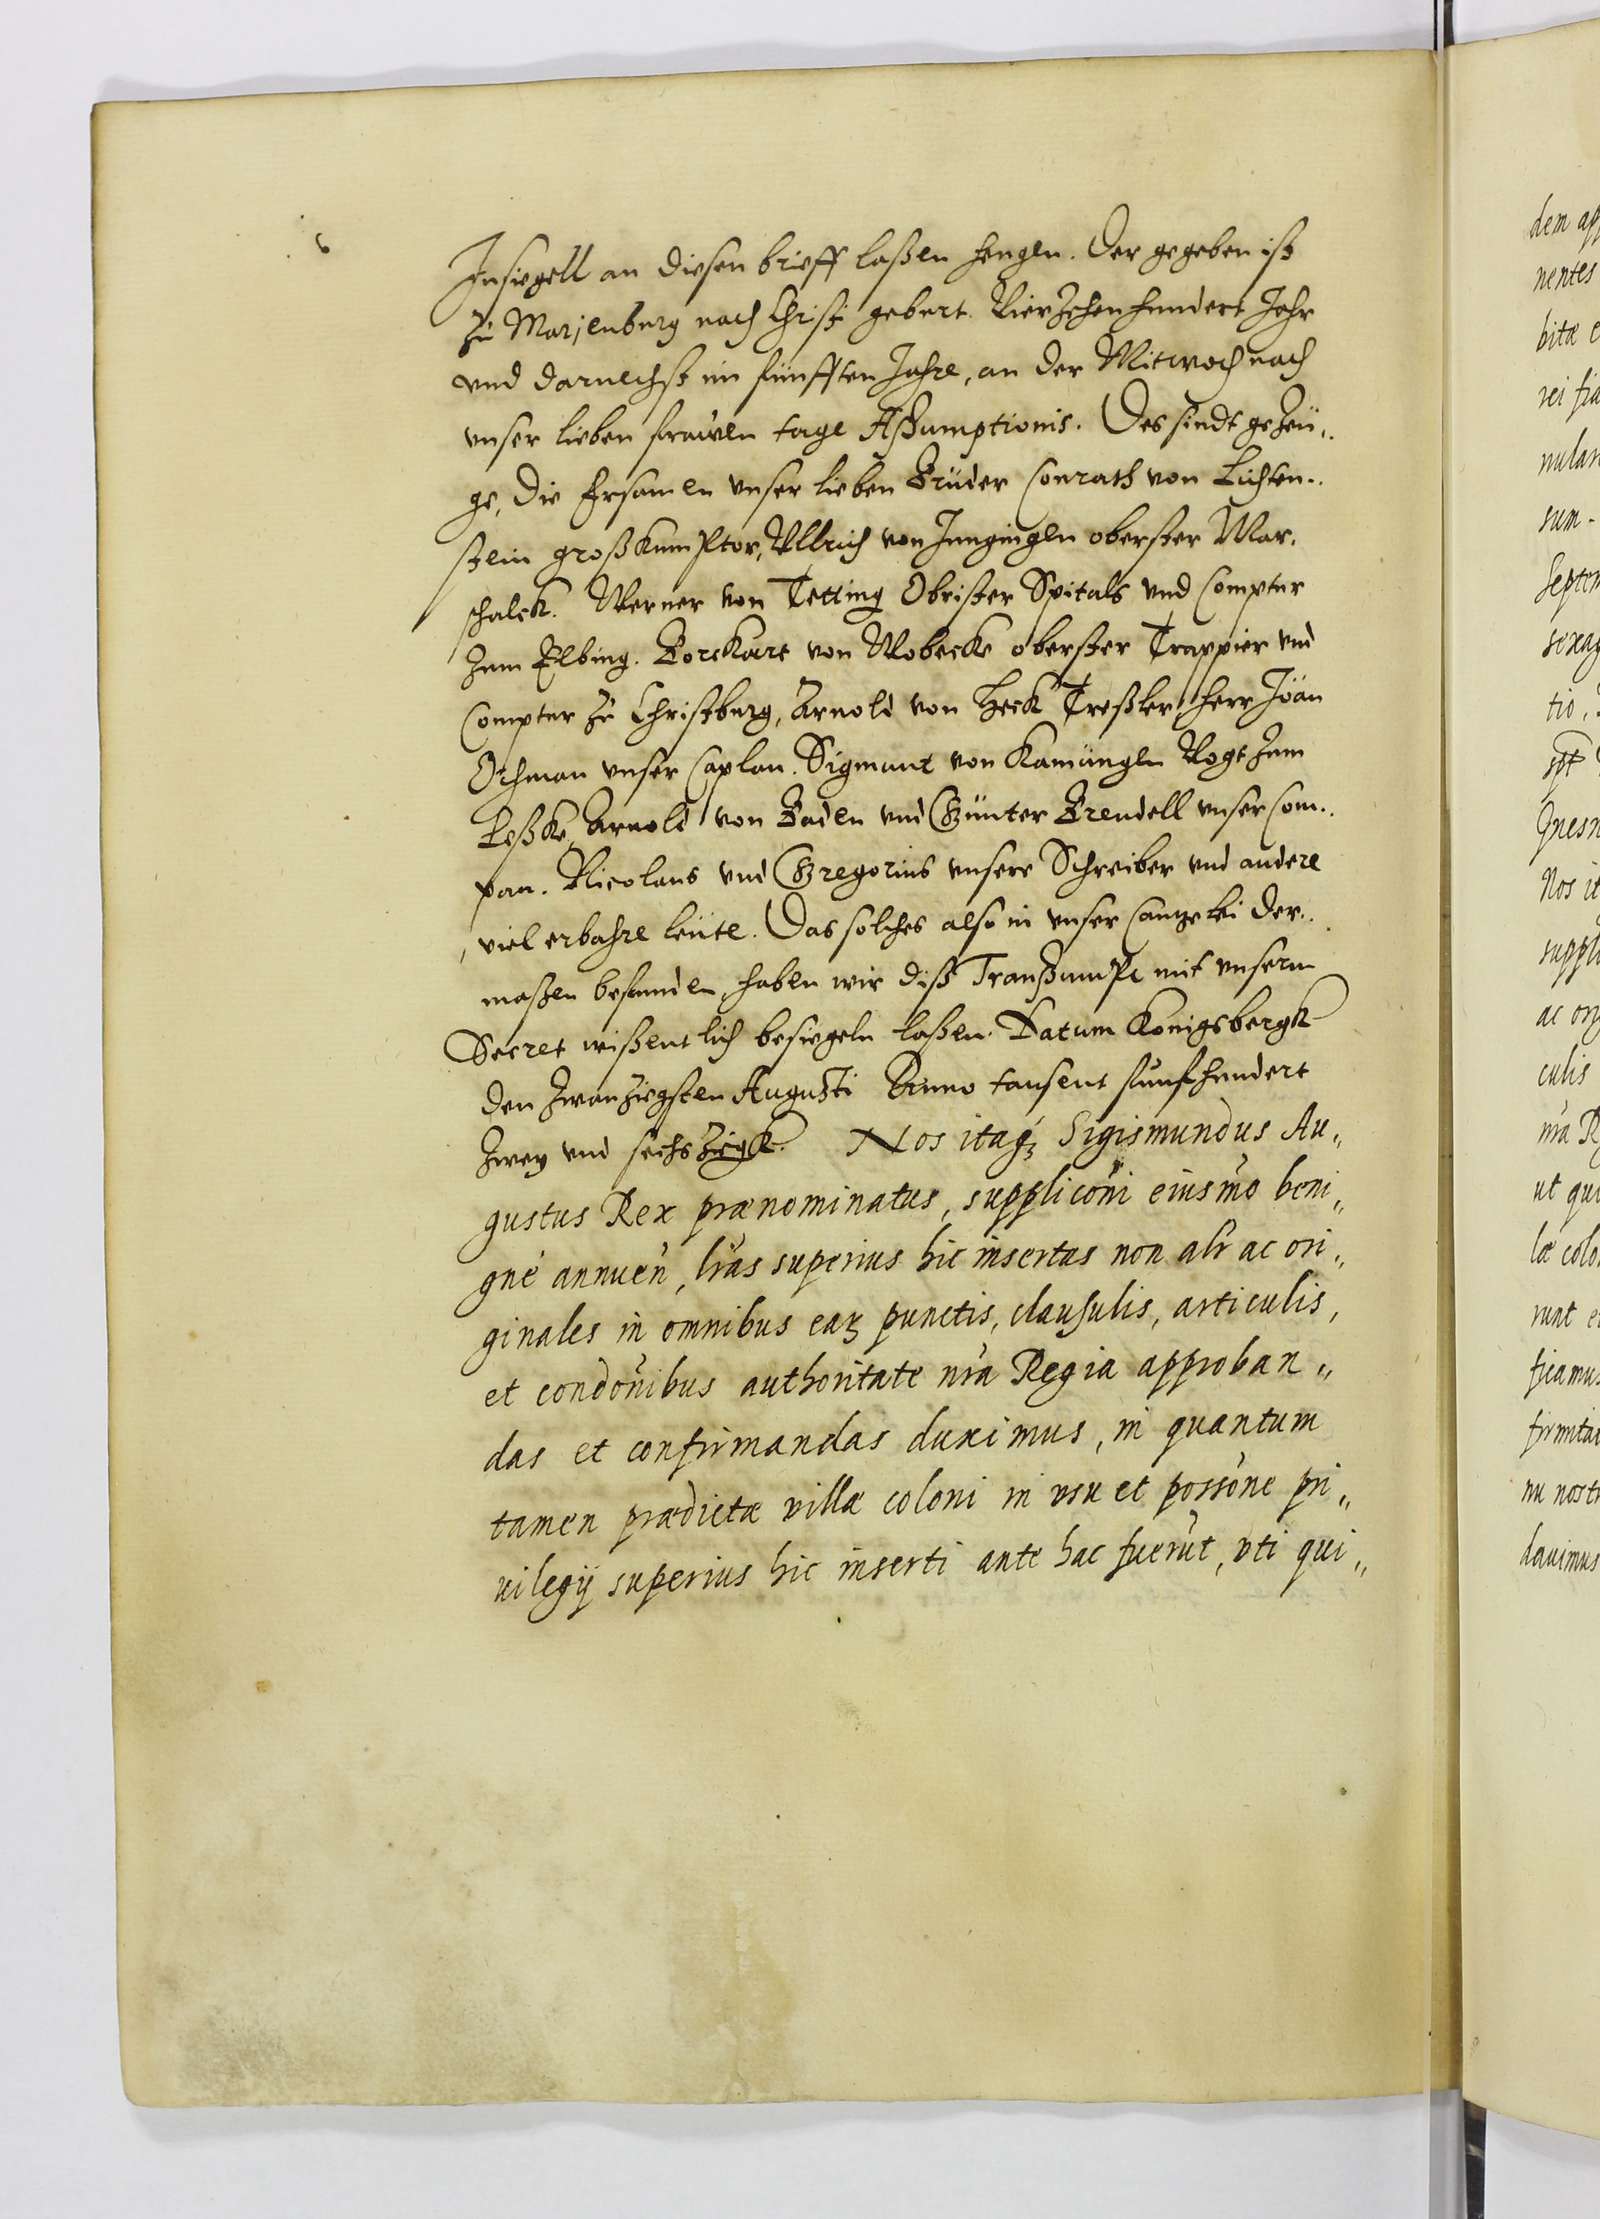 Insiegell an diesen brieff laßen hengen. Der gegeben ist
zu Marjenburg nach Christ geburt. Vierzehenhundert Jahr
vnd darnechst im fünfften Jahre, an der Mitwoch nach
vnser lieben frawen tage Aßumptionis. Des sindt gezeü„
ge, die Ersamen vnser lieben Brüder Conrath von Lichten„
stein großkumptor, Ullrich von Jungingen oberster Mar„
schalck. Werner von Tetting Obrister Spitals vnd Comptur
zum Elbing. Borckart von Wobecke oberster Trappier vnd
Comptur zu Christburg, Arnold von Heck Treßler, herr Joän
Ochman vnser Caplan. Sigmunt von Kamüngen Vogt zum
Leßke, Arnold von Baden vnd Günter Brendell vnser Com„
pan. Nicolaus vnd Gregorius vnsere Schreiber vnd andere
viel erbahre leüte. Das solches also in vnser Cantzelei der„
maßen befunden, haben wir diß Transsumpt mit vnserm
Secret wißentlich besiegeln laßen. Datum Königsbergk
den zwanzigsten Augusti Anno tausent fünfhundert
zwey vnd sechszigk. Nos itaqꝫ Sigismundus Au„
gustus Rex prænominatus, suppliconi eiusmo beni„
gnè annueñ, lras superius hic insertas non alr ac ori„
ginales in omnibus eaꝝ punctis, clausulis, articulis,
et condonibus authoritate nra Regia approban„
das et confirmandas duximus, in quantum
tamen prædictæ villæ coloni in vsu et possone pri„
uilegij superius hic inserti ante hac fuerūt, vti qui„
dem app
nentes
bitæ e
rei fia
nulan
sum.
Septem
sexag
tio,
Gnesn
Nos it
suppli
ac ori
culis
nra R
ut qui
læ colo
runt et
ficamus
firmitat
nu nostr
dauimus